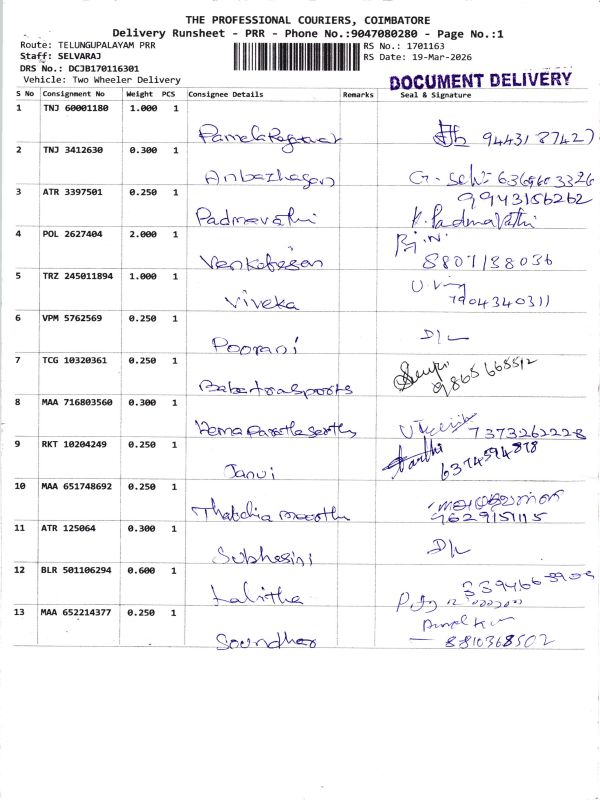 THE PROFESSIONAL COURIERS, COIMBATORE
Delivery Runsheet - PRR - Phone No.:9047080280 - Page No.:1
Route: TELUNGUPALAYAM PRR
RS No.: 1701163
Staff: SELVARAJ
RS Date: 19-Mar-2026
DRS No.: DCJB170116301
Vehicle: Two Wheeler Delivery
DOCUMENT DELIVERY
S No Consignment No Weight PCS Consignee Details Remarks Seal & Signature
1 TNJ 60001180 1.000 1
94431 87427
2 TNJ 3412630 0.300 1
Anbazhagan
9943156262
3 ATR 3397501 0.250 1
Padmavathi K. Padmavathi
4 POL 2627404 2.000 1
Venkatesan 8807138036
5 TRZ 245011894 1.000 1
Viveka 7904340311
6 VPM 5762569 0.250 1
Poorani D/L
7 TCG 10320361 0.250 1
9865668512
8 MAA 716803560 0.300 1
7373262228
9 RKT 10204249 0.250 1
Janvi 6374594878
10 MAA 651748692 0.250 1
11 ATR 125064 0.300 1
Subhasini D/L
12 BLR 501106294 0.600 1
Lalitha
13 MAA 652214377 0.250 1
8810368502